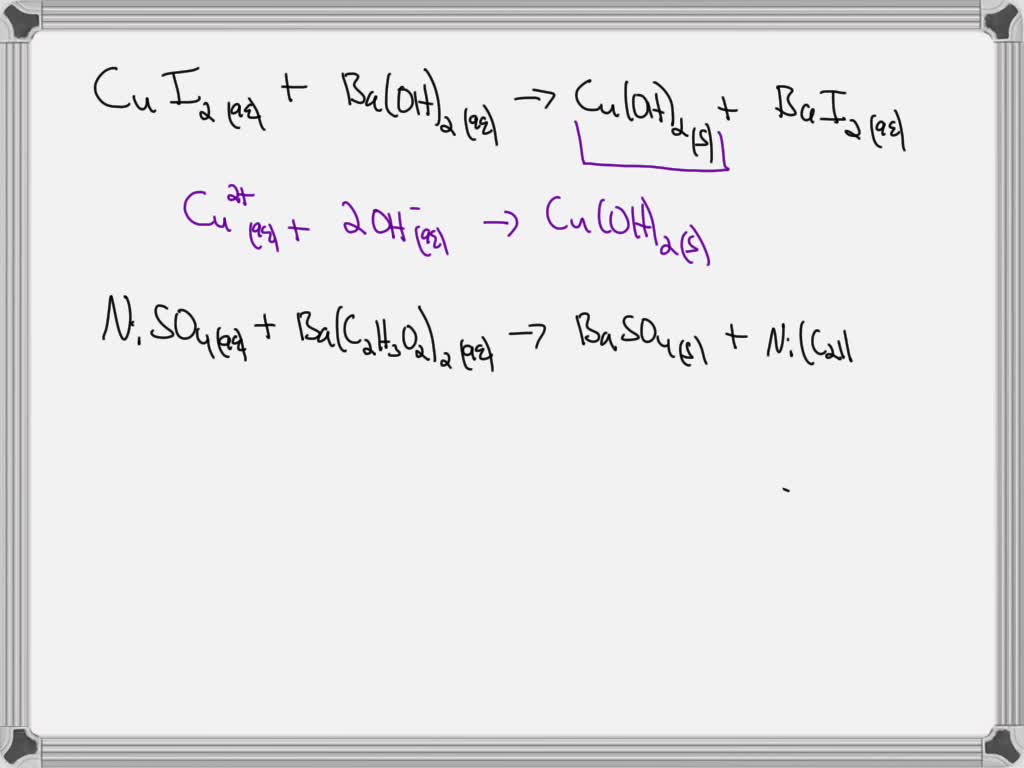 CuI₂(aq) + Ba(OH)₂(aq) → Cu(OH)₂(s) + BaI₂(aq)
Cu²⁺(aq) + 2OH⁻(aq) → Cu(OH)₂(s)
NiSO₄(aq) + Ba(C₂H₃O₂)₂(aq) → BaSO₄(s) + Ni(C₂